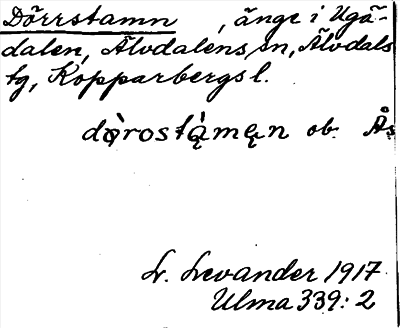 Dörrstamn , änge i Ugå-
dalen, Älvdalens sn, Älvdals
tg, Kopparbergs l.
dòrostàmęn ob. Ås
L. Levander 1917
Ulma 339:2